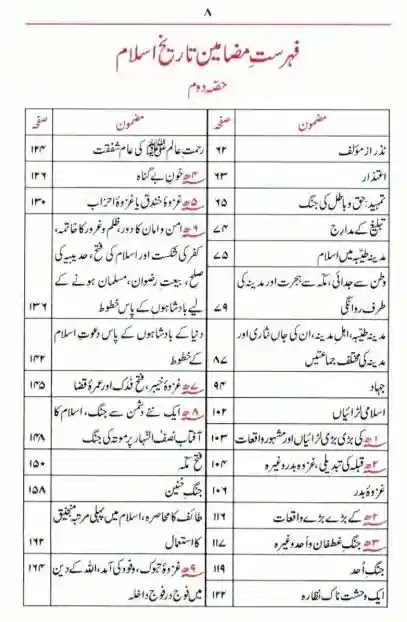 ۸
فہرستِ مضامین تاریخ اسلام
حصہ دوم
مضمون صفحہ
نذر از مؤلف ۶۲
اعتذار ۶۳
تمہید: حق و باطل کی جنگ ۶۵
تبلیغ کے مدارج ۷۴
مدینہ طیّبہ میں اسلام ۷۵
وطن سے جدائی، مکّہ سے ہجرت اور مدینہ کی
طرف روانگی ۷۹
مدینہ طیّبہ، اہل مدینہ، ان کی جاں نثاری اور
مدینہ کی مختلف جماعتیں ۸۷
جہاد ۹۴
اسلامی لڑائیاں ۱۰۲
۱ھ کی بڑی بڑی لڑائیاں اور مشہور واقعات ۱۰۳
۲ھ قبلہ کی تبدیلی، غزوہ بدر وغیرہ ۱۰۴
غزوۂ بدر ۱۰۶
۲ھ کے بڑے بڑے واقعات ۱۱۶
۳ھ جنگِ غطفان و اُحد وغیرہ ۱۱۷
جنگِ اُحد ۱۱۹
ایک وحشت ناک نظارہ ۱۲۲
مضمون صفحہ
رحمتِ عالم ﷺ کی عام شفقت ۱۲۴
۴ھ خونِ بے گناہ ۱۲۶
۵ھ غزوۂ خندق یا غزوۂ احزاب ۱۳۰
۶ھ امن و امان کا دور، ظلم و غرور کا خاتمہ،
کفر کی شکست اور اسلام کی فتح، حدیبیہ کی
صلح، بیعت رضوان، مسلمان ہونے کے
لیے بادشاہوں کے پاس خطوط ۱۳۶
دنیا کے بادشاہوں کے پاس دعوتِ اسلام
کے خطوط ۱۴۲
۷ھ غزوۂ خیبر، فتح فدک اور عمرۂ قضا ۱۴۵
۸ھ ایک نئے دشمن سے جنگ، اسلام کا
آفتاب نصف النّہار پر مُوتہ کی جنگ ۱۴۸
فتح مکّہ ۱۵۰
جنگِ حُنین ۱۵۸
طائف کا محاصرہ، اسلام میں پہلی مرتبہ منجنیق
کا استعمال ۱۶۲
۹ھ غزوۂ تبوک، وفود کی آمد، اللہ کے دین
میں فوج در فوج داخلہ ۱۶۴